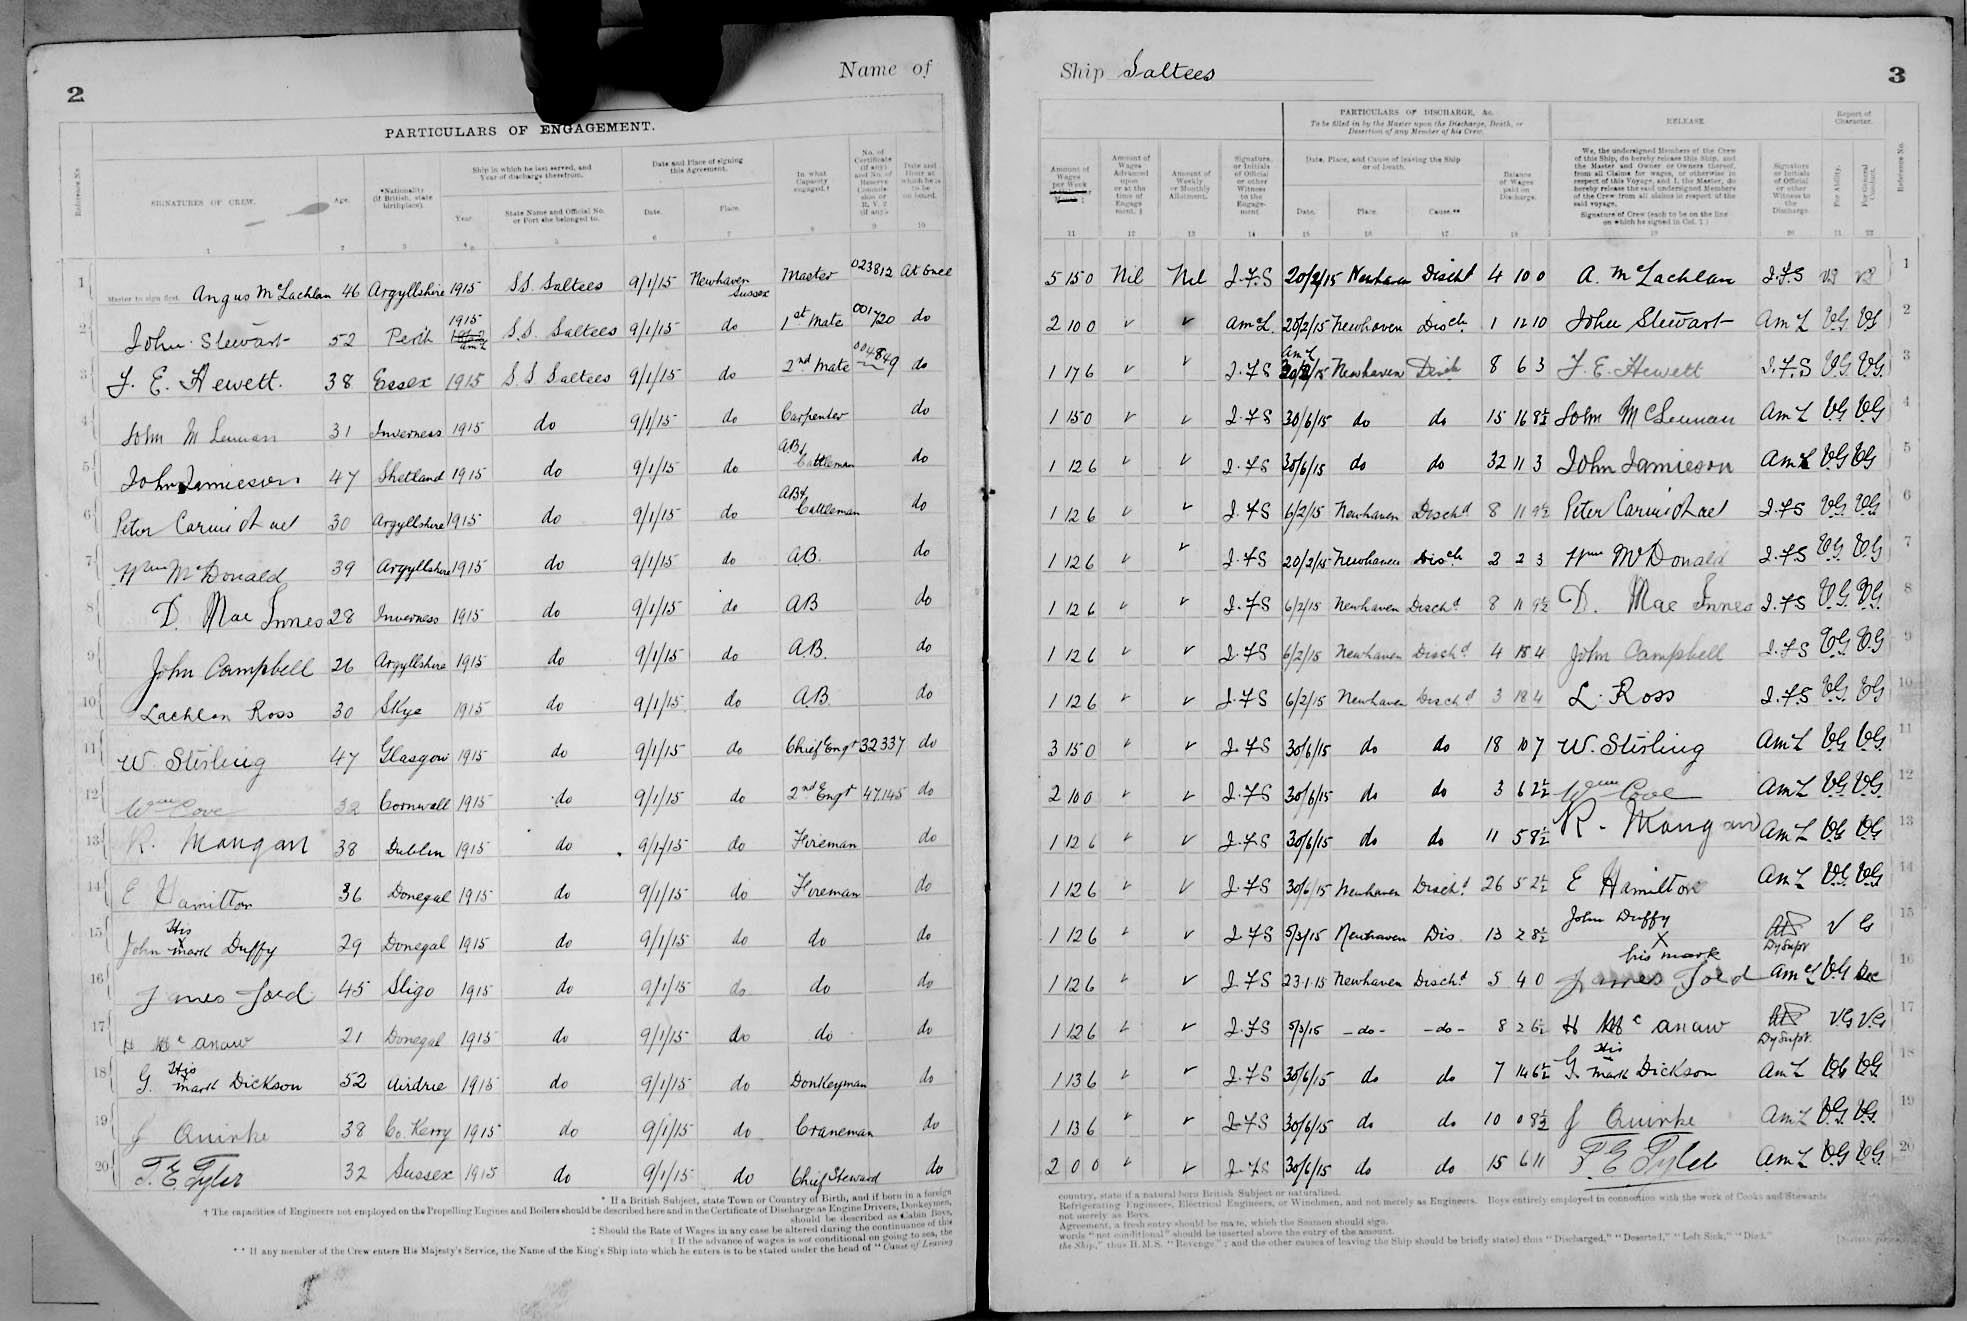 2
Name of
PARTICULARS OF ENGAGEMENT.
Reference No.
SIGNATURES OF CREW.
Age.
*Nationality (if British, state birthplace).
Ship in which he last served, and Year of discharge therefrom.
Year.
State Name and Official No. or Port she belonged to.
Date and Place of signing this Agreement.
Date.
Place.
In what Capacity engaged.†
No. of Certificate (if any) and No. of Reserve Commission or R. V. 2 (if any).
Date and Hour at which he is to be on board.
1 2 3 4 5 6 7 8 9 10
1 Master to sign first. Angus McLachlan 46 Argyllshire 1915 S.S. Saltees 9/1/15 Newhaven Sussex Master 023812 At Once
2 John Stewart 52 Perth 1915 S.S. Saltees 9/1/15 do 1st Mate 001720 do
3 F. E. Hewett. 38 Essex 1915 S.S Saltees 9/1/15 do 2nd Mate 004849 do
4 John M Lennan 31 Inverness 1915 do 9/1/15 do Carpenter do
5 John Jamieson 47 Shetland 1915 do 9/1/15 do AB & Cattleman do
6 Peter Carmichael 30 Argyllshire 1915 do 9/1/15 do AB & Cattleman do
7 Wm McDonald 39 Argyllshire 1915 do 9/1/15 do A.B. do
8 D. Mac Innes 28 Inverness 1915 do 9/1/15 do AB do
9 John Campbell 26 Argyllshire 1915 do 9/1/15 do A.B. do
10 Lachlan Ross 30 Skye 1915 do 9/1/15 do A.B. do
11 W. Stirling 47 Glasgow 1915 do 9/1/15 do Chief Engr 32337 do
12 Wm Cove 32 Cornwall 1915 do 9/1/15 do 2nd Engr 47145 do
13 R. Mangan 38 Dublin 1915 do 9/1/15 do Fireman do
14 E Hamilton 36 Donegal 1915 do 9/1/15 do Fireman do
15 John His X mark Duffy 29 Donegal 1915 do 9/1/15 do do do
16 James Ford 45 Sligo 1915 do 9/1/15 do do do
17 H Mc anaw 21 Donegal 1915 do 9/1/15 do do do
18 G. His X mark Dickson 52 Airdrie 1915 do 9/1/15 do Donkeyman do
19 J Quirke 38 Co. Kerry 1915 do 9/1/15 do Craneman do
20 F. E. Tyler 32 Sussex 1915 do 9/1/15 do Chief Steward do
* If a British Subject, state Town or Country of Birth, and if born in a foreign
† The capacities of Engineers not employed on the Propelling Engines and Boilers should be described here and in the Certificate of Discharge as Engine Drivers, Donkeymen,
should be described as Cabin Boys,
‡ Should the Rate of Wages in any case be altered during the continuance of this
If the advance of wages is not conditional on going to sea, the
** If any member of the Crew enters His Majesty's Service, the Name of the King's Ship into which he enters is to be stated under the head of "Cause of Leaving
Ship Saltees
3
Amount of Wages per Week
Amount of Wages Advanced upon or at the time of Engagement.
Amount of Weekly or Monthly Allotment.
Signature or Initials of Official or other Witness to the Engagement
PARTICULARS OF DISCHARGE, &c.
To be filled in by the Master upon the Discharge, Death, or Desertion of any Member of his Crew.
Date, Place, and Cause of leaving the Ship or of Death.
Date.
Place.
Cause.**
Balance of Wages paid on Discharge.
RELEASE.
We, the undersigned Members of the Crew of this Ship, do hereby release this Ship, and the Master and Owner or Owners thereof, from all Claims for wages, or otherwise in respect of this Voyage, and I, the Master, do hereby release the said undersigned Members of the Crew from all claims in respect of the said voyage.
Signature of Crew (each to be on the line on which he signed in Col. 1.)
Signature or Initials of Official or other Witness to the Discharge.
Report of Character.
For Ability.
For General Conduct.
Reference No.
11 12 13 14 15 16 17 18 19 20 21 22
5 15 0 Nil Nil J.F.S 20/2/15 Newhaven Dischd 4 10 0 A. McLachlan J.F.S VG VG 1
2 10 0 v v AmcL 20/2/15 Newhaven Disch 1 12 10 John Stewart AmL VG VG 2
1 17 6 v v J.F.S Newhaven Disch 8 6 3 F. E. Hewett J.F.S V.G. V.G. 3
1 15 0 v v J.F.S 30/6/15 do do 15 16 8½ John McLennan AmL VG VG 4
1 12 6 v v J.F.S 30/6/15 do do 32 11 3 John Jamieson AmL VG VG 5
1 12 6 v v J.F.S 6/2/15 Newhaven Dischd 8 11 9½ Peter Carmichael J.F.S V.G. V.G. 6
1 12 6 v v J.F.S 20/2/15 Newhaven Disch 2 2 3 Wm McDonald J.F.S V.G. V.G 7
1 12 6 v v J.F.S 6/2/15 Newhaven Dischd 8 11 9½ D. Mac Innes J.F.S V.G. V.G. 8
1 12 6 v v J.F.S 6/2/15 Newhaven Dischd 4 18 4 John Campbell J.F.S V.G. V.G 9
1 12 6 v v J.F.S 6/2/15 Newhaven Dischd 3 18 4 L. Ross J.F.S V.G. V.G 10
3 15 0 v v J.F.S 30/6/15 do do 18 10 7 W. Stirling AmL V.G. V.G. 11
2 10 0 v v J.F.S 30/6/15 do do 3 6 2½ Wm Cove AmL V.G. V.G. 12
1 12 6 v v J.F.S 30/6/15 do do 11 5 8½ R. Mangan AmL V.G V.G. 13
1 12 6 v v J.F.S 30/6/15 Newhaven Dischd 26 5 2½ E Hamilton AmL V.G. V.G. 14
1 12 6 v v J.F.S 5/3/15 Newhaven Dis. 13 2 8½ John Duffy X his mark Dy Supt V G 15
1 12 6 v v J.F.S 23.1.15 Newhaven Dischd 5 4 0 James Ford AmcL V.G Dec 16
1 12 6 v v J.F.S 5/3/15 - do - - do - 8 2 6½ H Mc anaw Dy Supt. V.G V.G 17
1 13 6 v v J.F.S 30/6/15 do do 7 14 6½ G. His mark Dickson AmL V.G V.G. 18
1 13 6 v v J.F.S 30/6/15 do do 10 0 8½ J Quirke AmL V.G. V.G. 19
2 0 0 v v J.F.S 30/6/15 do do 15 6 11 F E Tyler AmL V.G V.G. 20
country, state if a natural born British Subject or naturalized.
Refrigerating Engineers, Electrical Engineers, or Winchmen, and not merely as Engineers. Boys entirely employed in connection with the work of Cooks and Stewards
not merely as Boys.
Agreement, a fresh entry should be made, which the Seamen should sign.
words "not conditional" should be inserted above the entry of the amount.
the Ship," thus H.M.S. "Revenge"; and the other causes of leaving the Ship should be briefly stated thus "Discharged," "Deserted," "Left Sick," "Died."